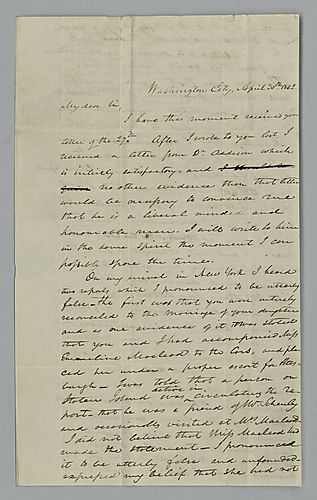 Washington City, April 30th 1842
My dear Sir,
I have this moment received your
letter of the 27th. After I wrote to you last I
received a letter from Dr. Addison which
is entirely satisfactory. and
no other evidence than that letter
would be necessary to convince me
that he is a liberal minded and
honourable man. I will write to him
in the same spirit the moment I can
possibly spare the time.
On my arrival in New York I heard
two reports which I pronounced to be utterly
false—the first was that you were entirely
reconciled to the marriage of your daughter
and as one evidence of it it was stated
that you and I had accompanied Miss
Macleod to the Cars, and pla-
ced her under a proper escort for Pitts-
burgh—I was told that a person on
Staten Island was active circulating the re-
port—that he was a friend of Mr. Schenley
and occasionally visited at Mrs. Macleod.
I did not believe that Miss Macleod had
made the statement—I pronounced
it to be utterly false and unfounded
expressed my belief that she had not